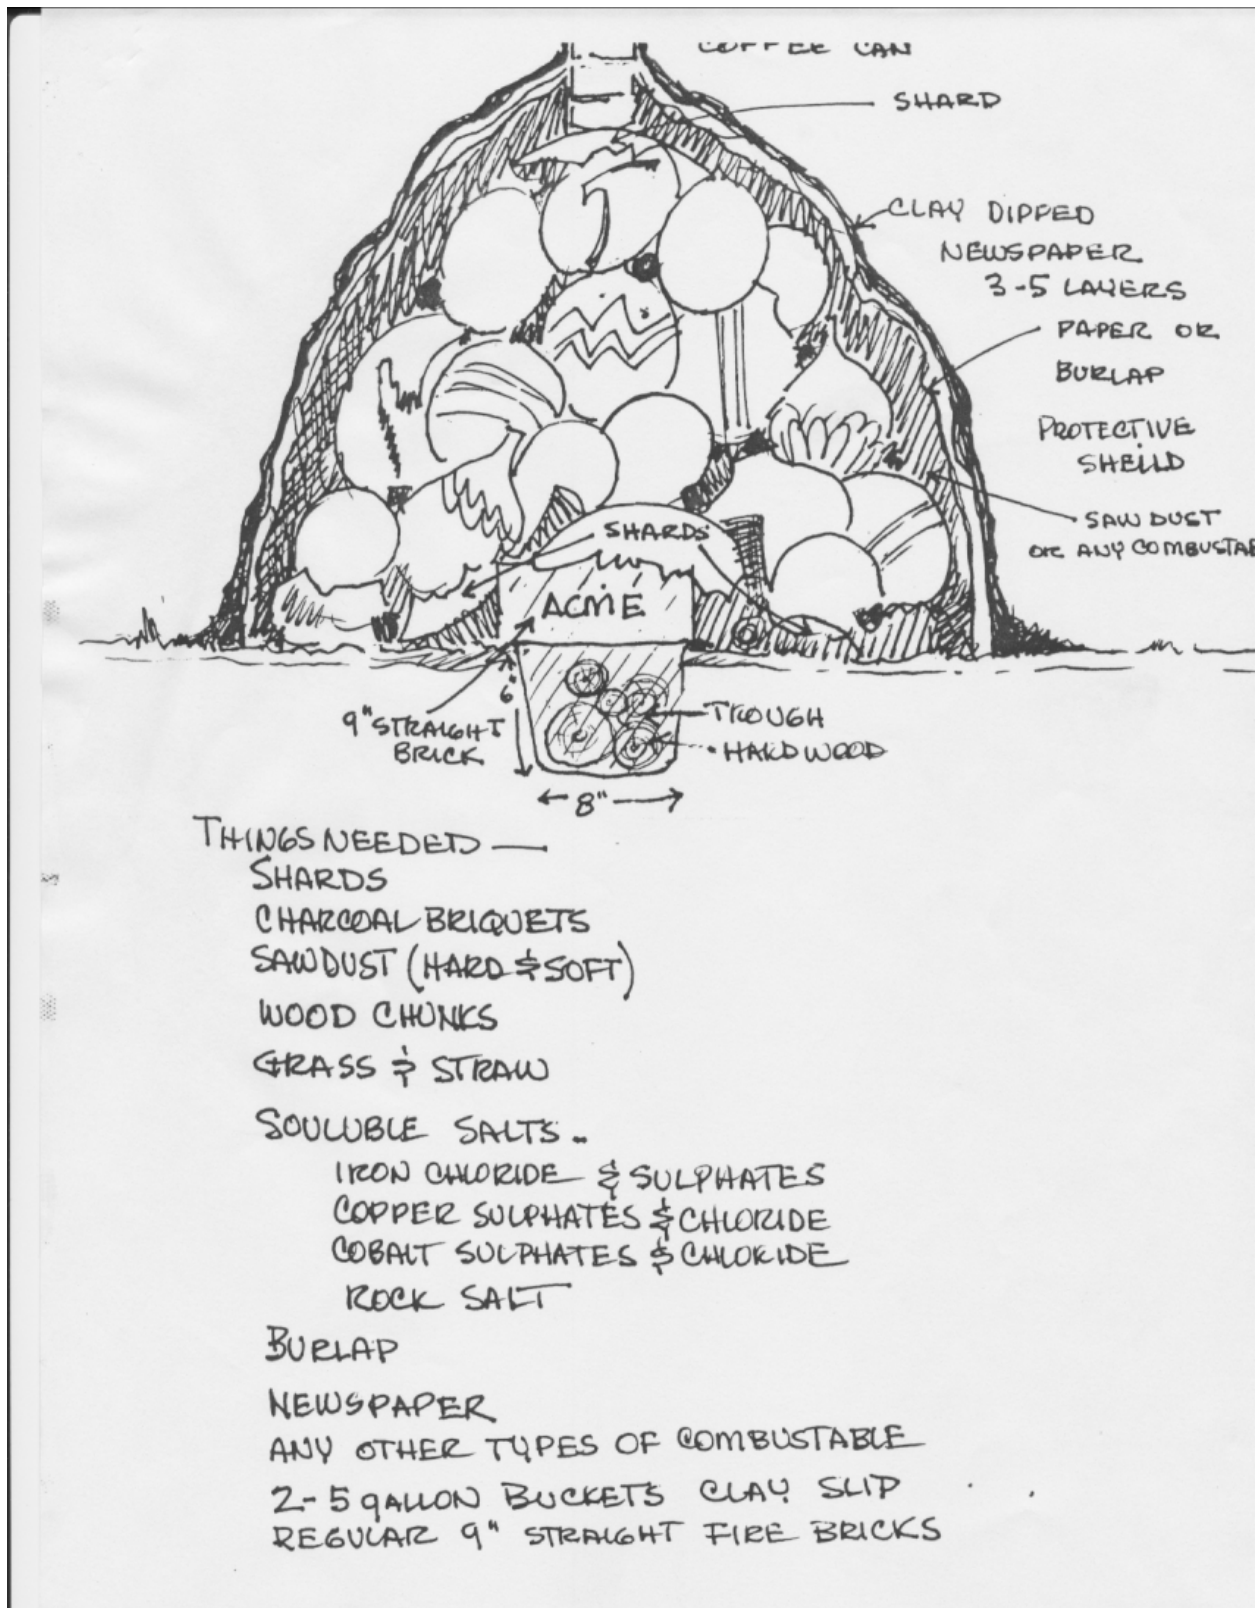 COFFEE CAN
SHARD
CLAY DIPPED
NEWSPAPER
3-5 LAYERS
PAPER OR
BURLAP
PROTECTIVE
SHEILD
SAW DUST
OR ANY COMBUSTAB
SHARDS
ACME
6"
9" STRAIGHT
BRICK
TROUGH
HARDWOOD
8"
THINGS NEEDED —
SHARDS
CHARCOAL BRIQUETS
SAWDUST (HARD & SOFT)
WOOD CHUNKS
GRASS & STRAW
SOULUBLE SALTS..
IRON CHLORIDE & SULPHATES
COPPER SULPHATES & CHLORIDE
COBALT SULPHATES & CHLORIDE
ROCK SALT
BURLAP
NEWSPAPER
ANY OTHER TYPES OF COMBUSTABLE
2-5 GALLON BUCKETS CLAY SLIP
REGULAR 9" STRAIGHT FIRE BRICKS